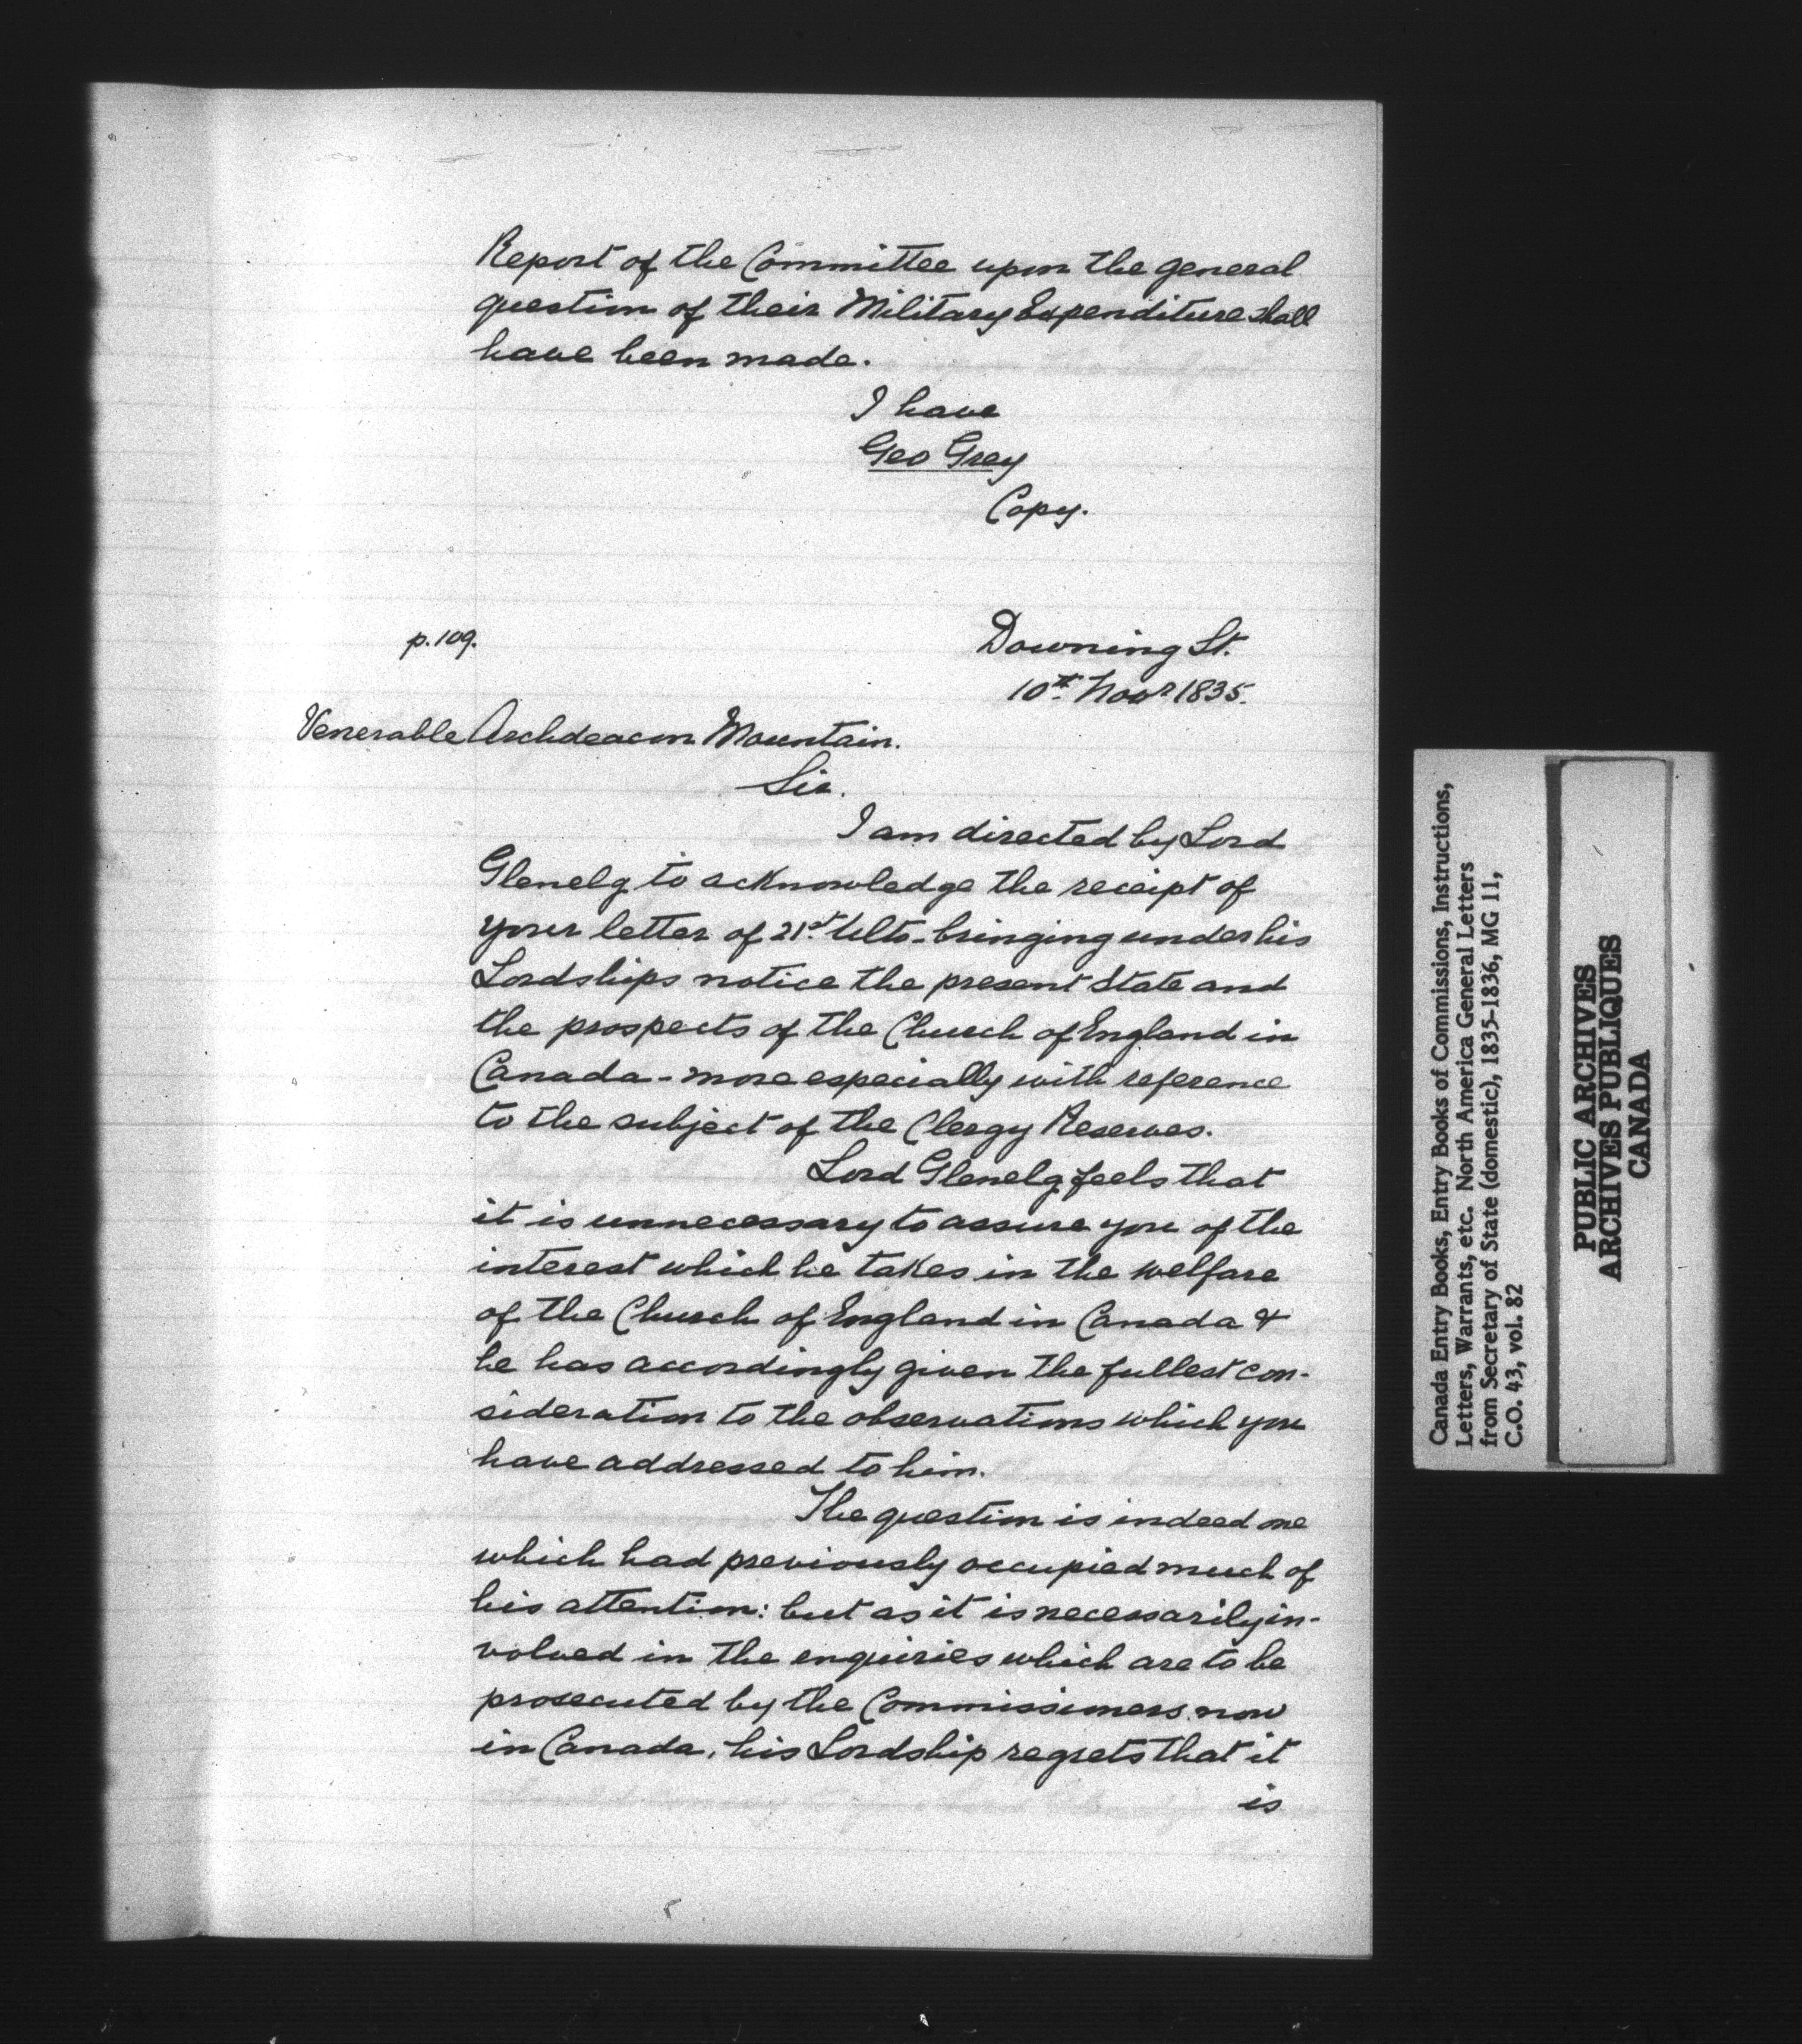 Report of the Committee upon the general
question of their Military Expenditure shall
have been made.
I have
Geo Grey
Copy.
p. 109.
Downing St.
10th Novr 1835.
Venerable Archdeacon Mountain.
Sir.
I am directed by Lord
Glenelg to acknowledge the receipt of
your letter of 21st Ulto - bringing under his
Lordships notice the present State and
the prospects of the Church of England in
Canada - more especially with reference
to the subject of the Clergy Reserves.
Lord Glenelg feels that
it is unnecessary to assure you of the
interest which he takes in the welfare
of the Church of England in Canada &
he has accordingly given the fullest con-
sideration to the observations which you
have addressed to him.
The question is indeed one
which had previously occupied much of
his attention: but as it is necessarily in-
volved in the enquiries which are to be
prosecuted by the Commissioners now
in Canada, his Lordship regrets that it
is
Canada Entry Books, Entry Books of Commissions, Instructions,
Letters, Warrants, etc. North America General Letters
from Secretary of State (domestic), 1835-1836, MG 11,
C.O. 43, vol. 82
PUBLIC ARCHIVES
ARCHIVES PUBLIQUES
CANADA